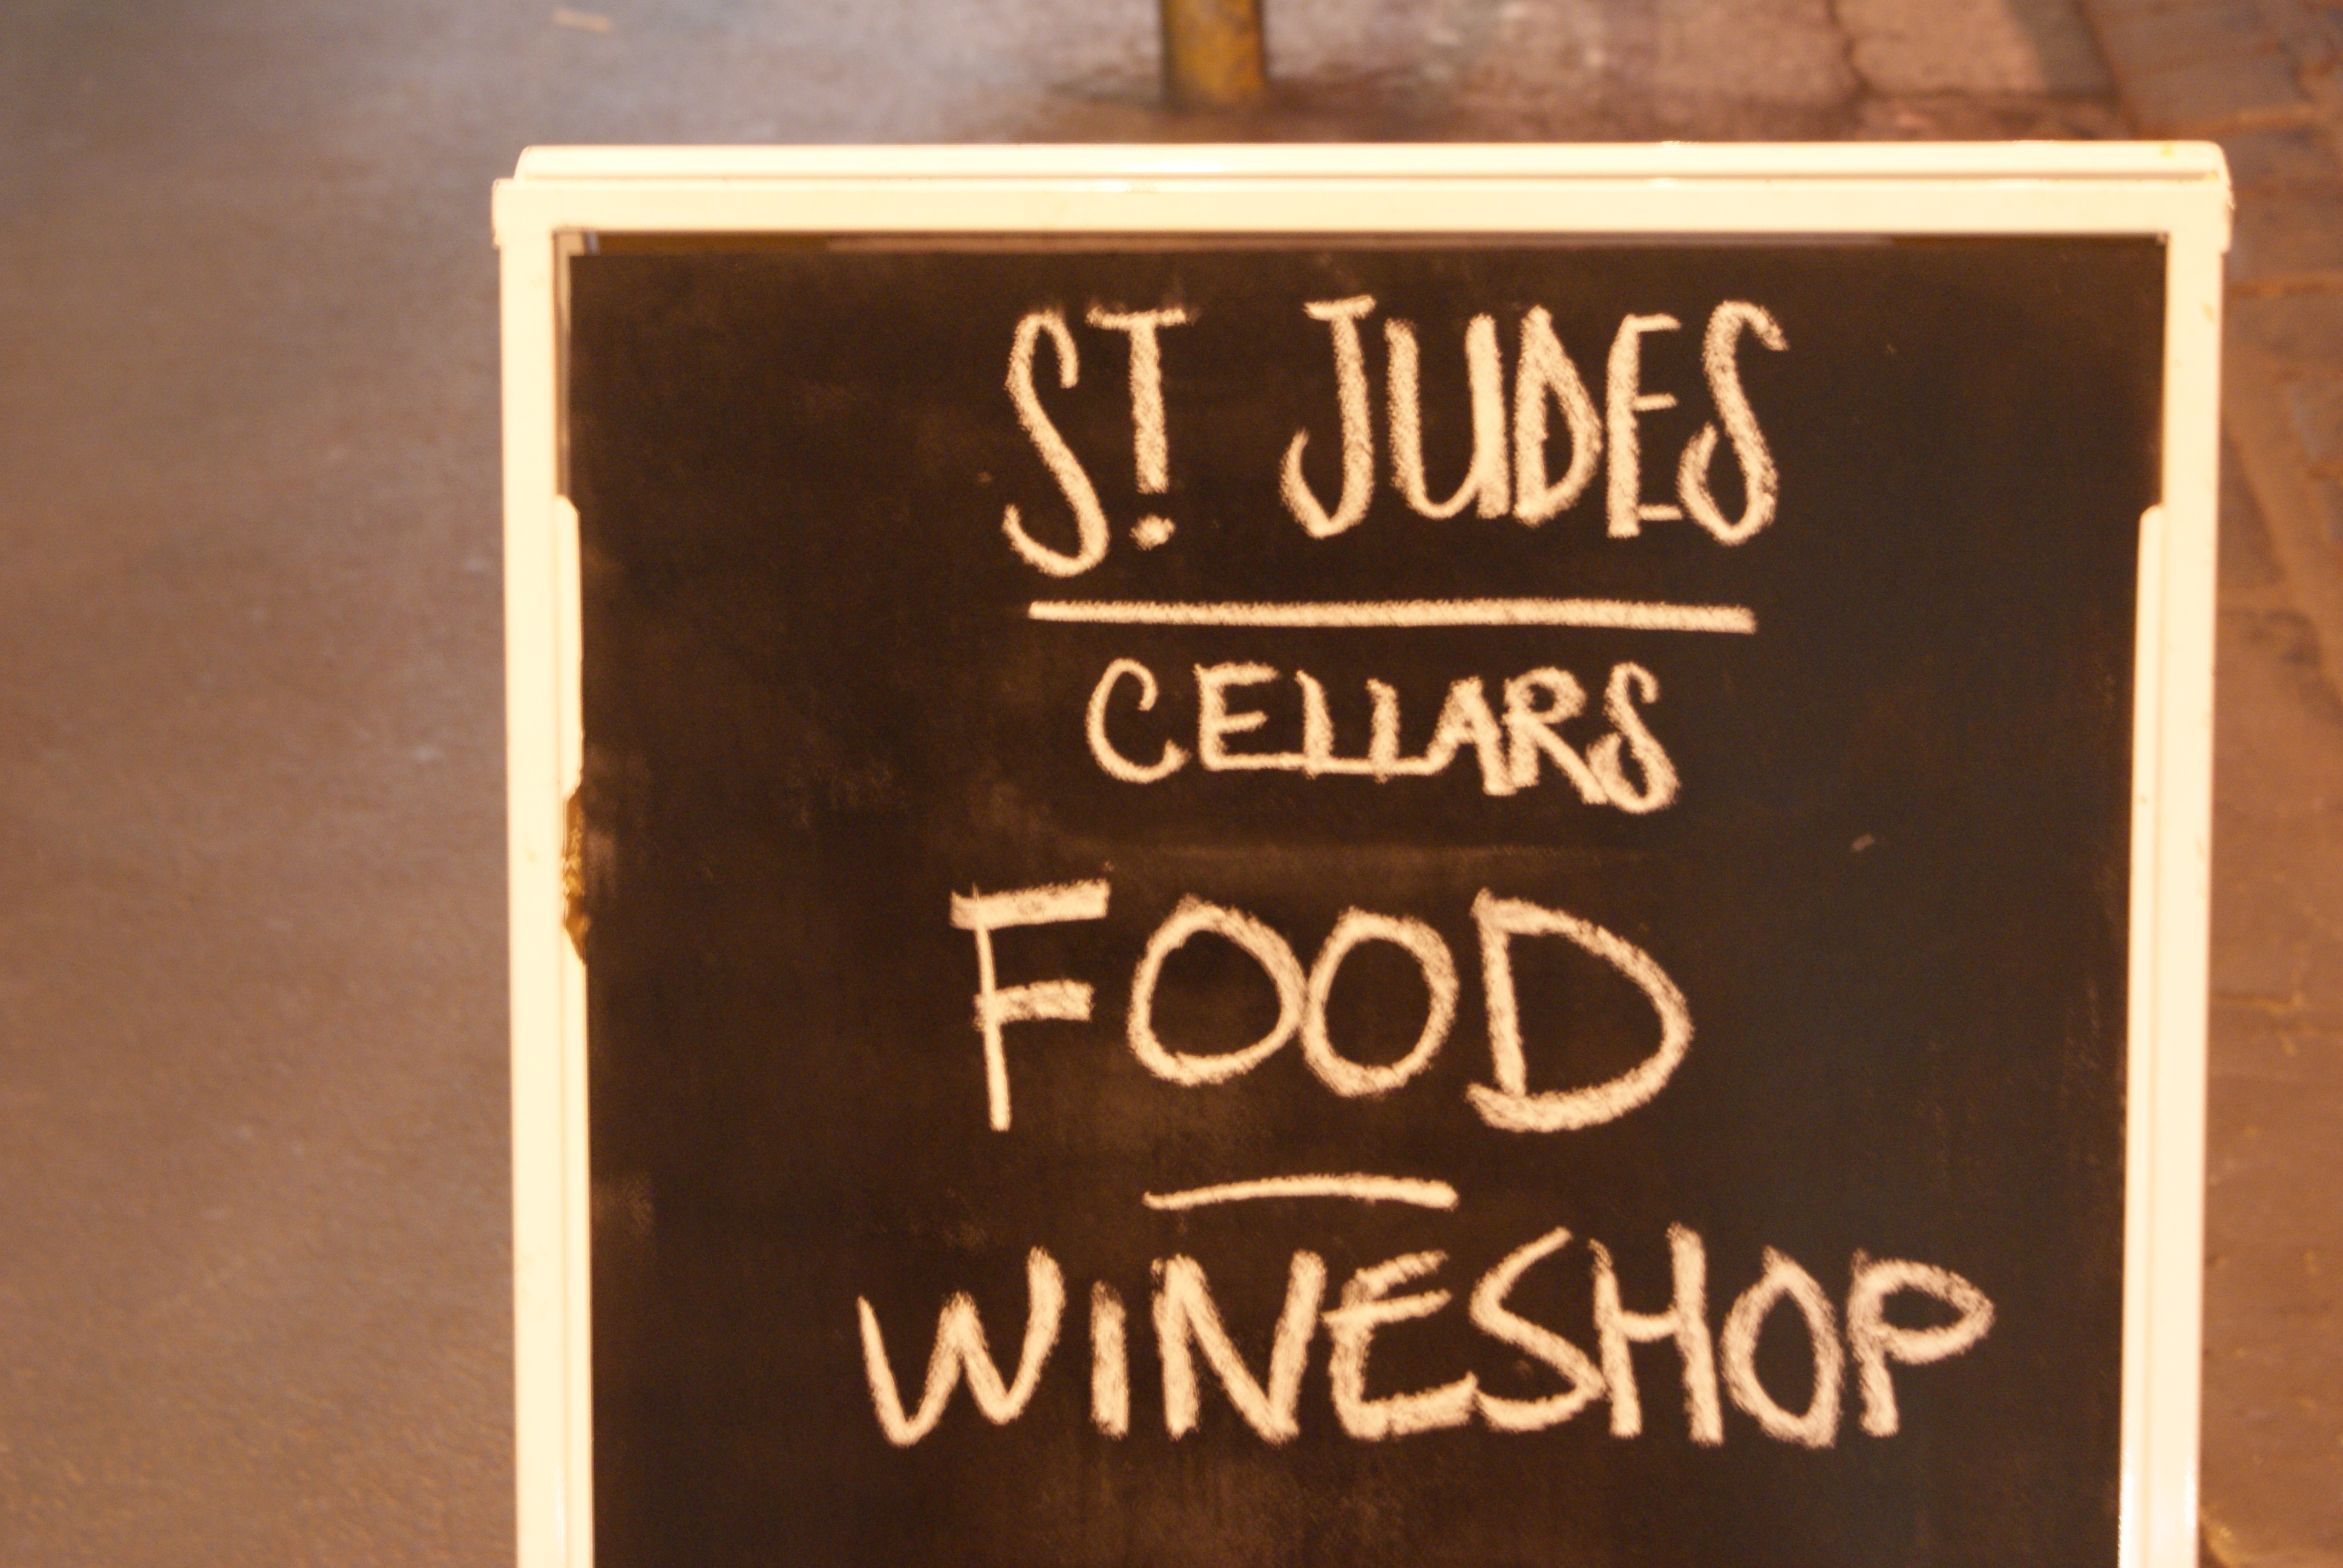 ST. JUDES
CELLARS
FOOD
WINESHOP